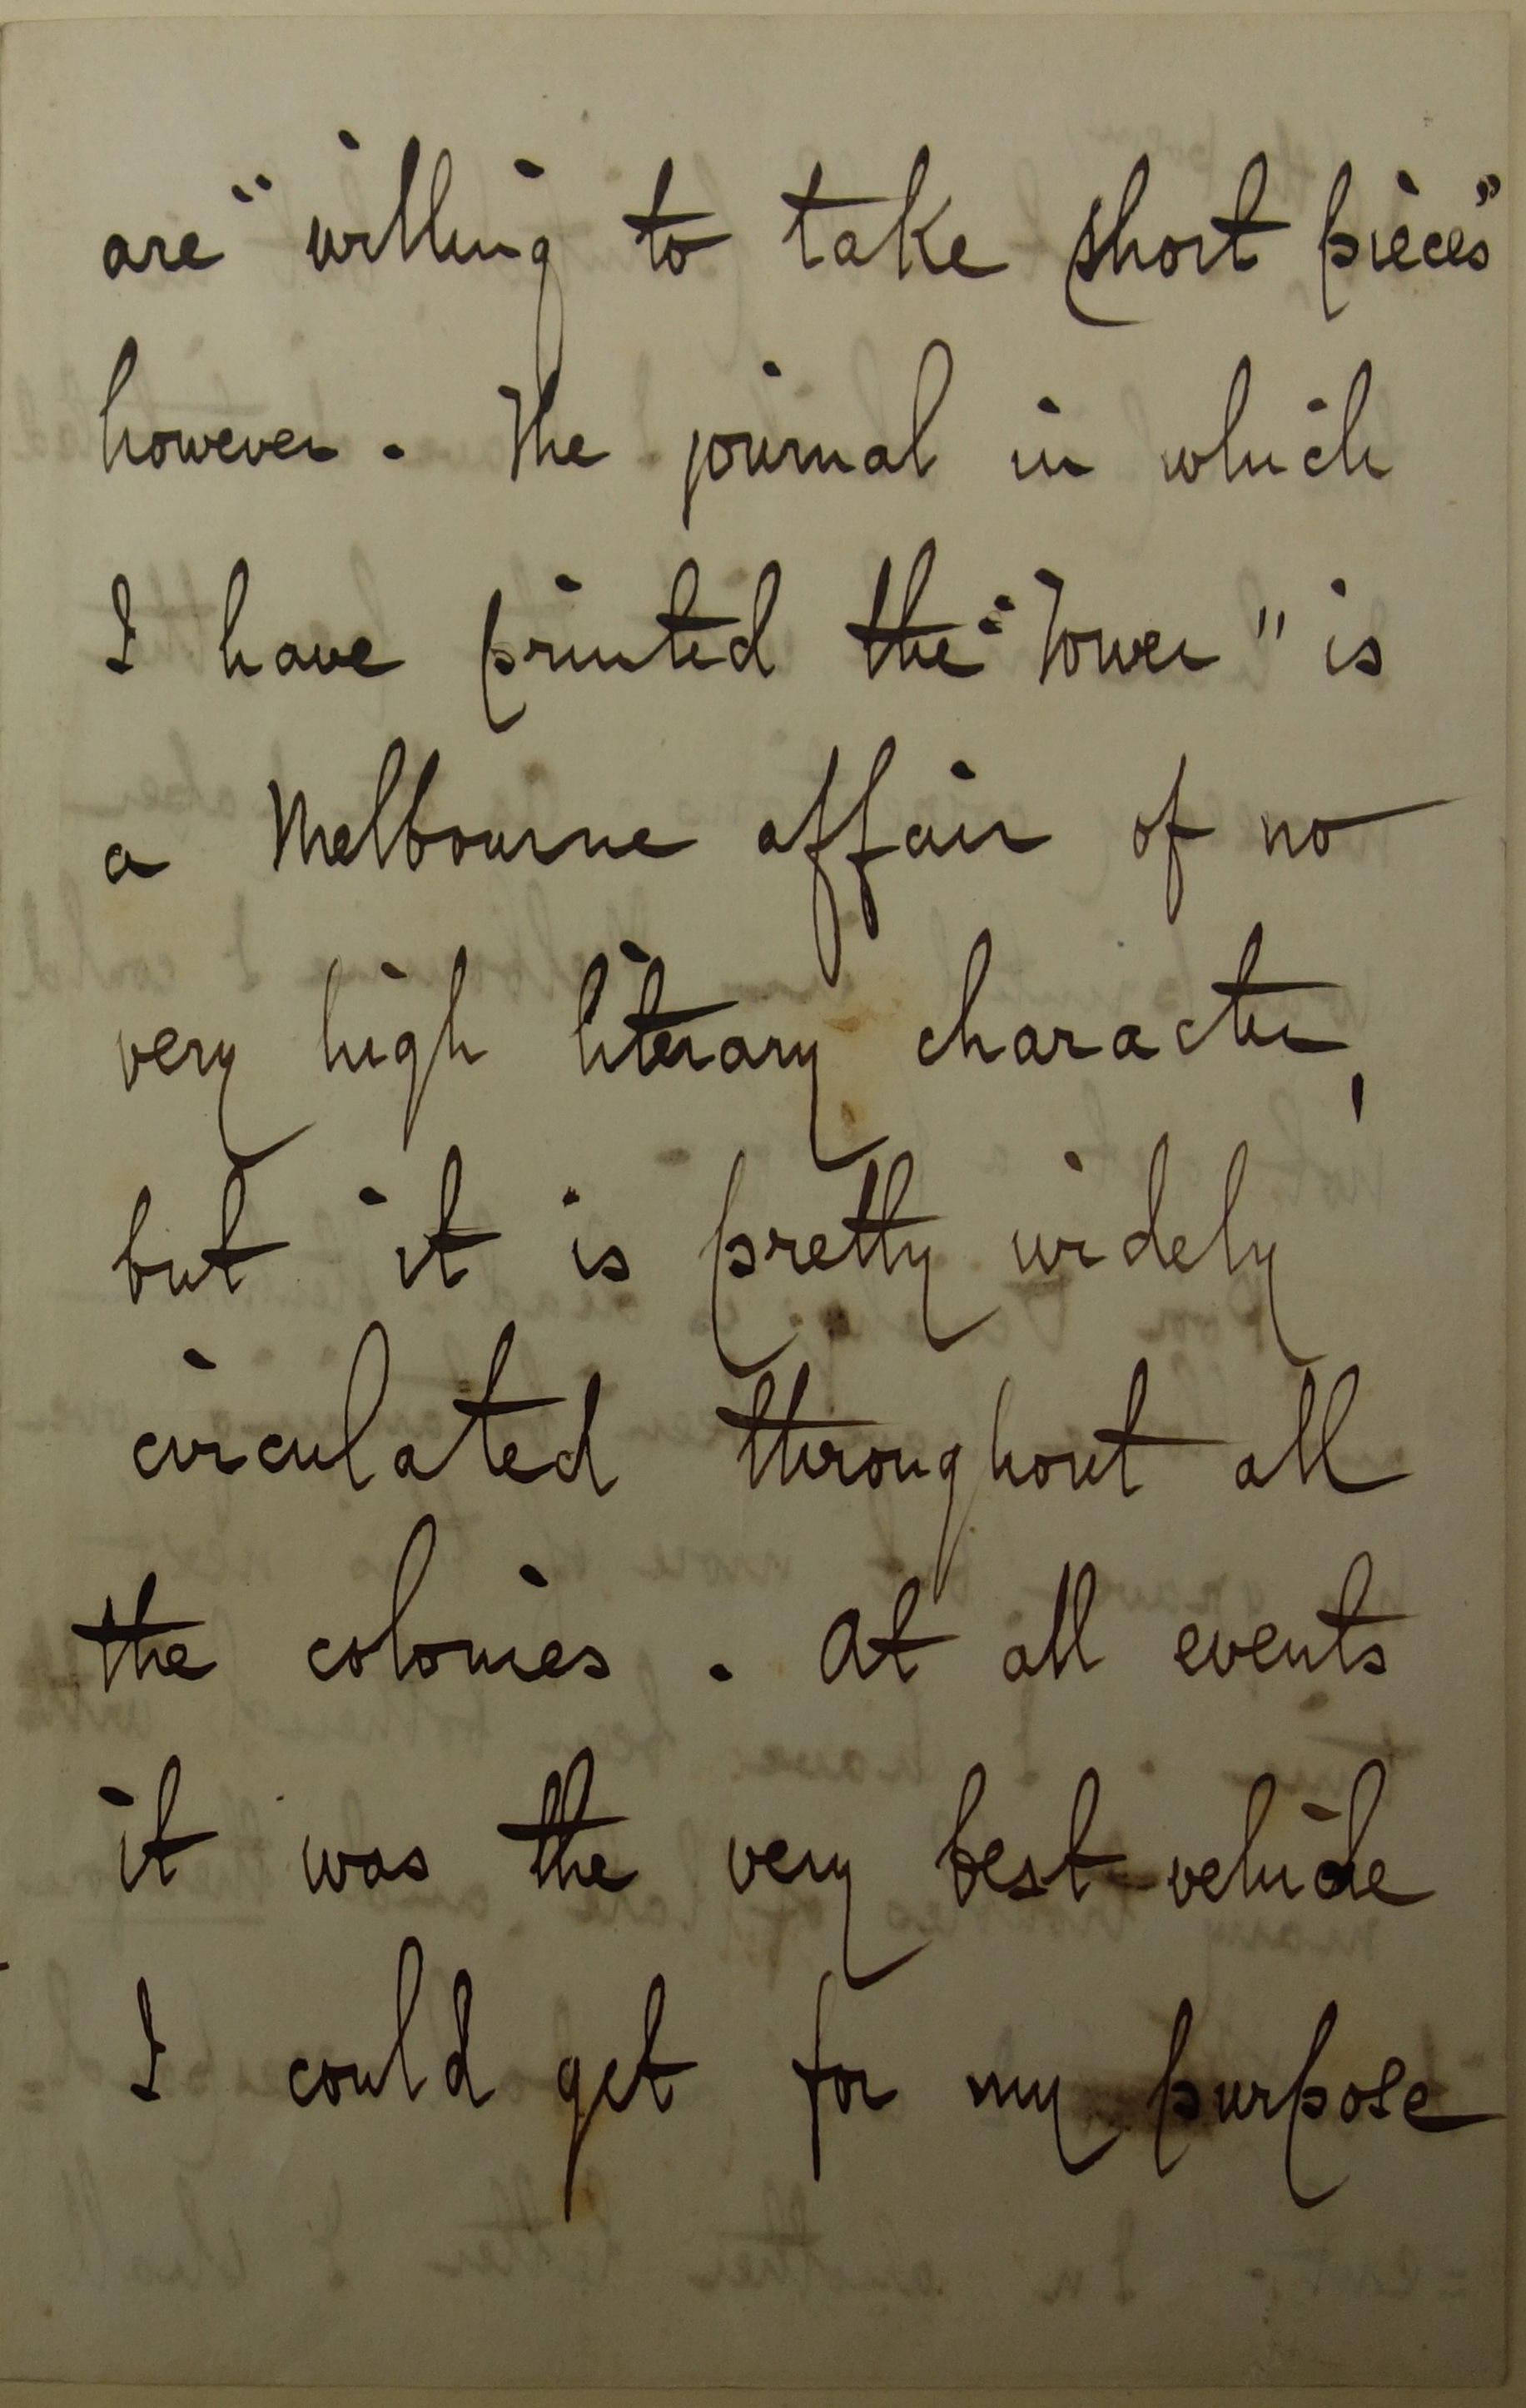 are "willing to take short pieces"
however. The journal in which
I have printed the "Tower" is
a Melbourne affair of no
very high literary character,
but it is pretty widely
circulated throughout all
the colonies. At all events
it was the very best vehicle
I could get for my purpose